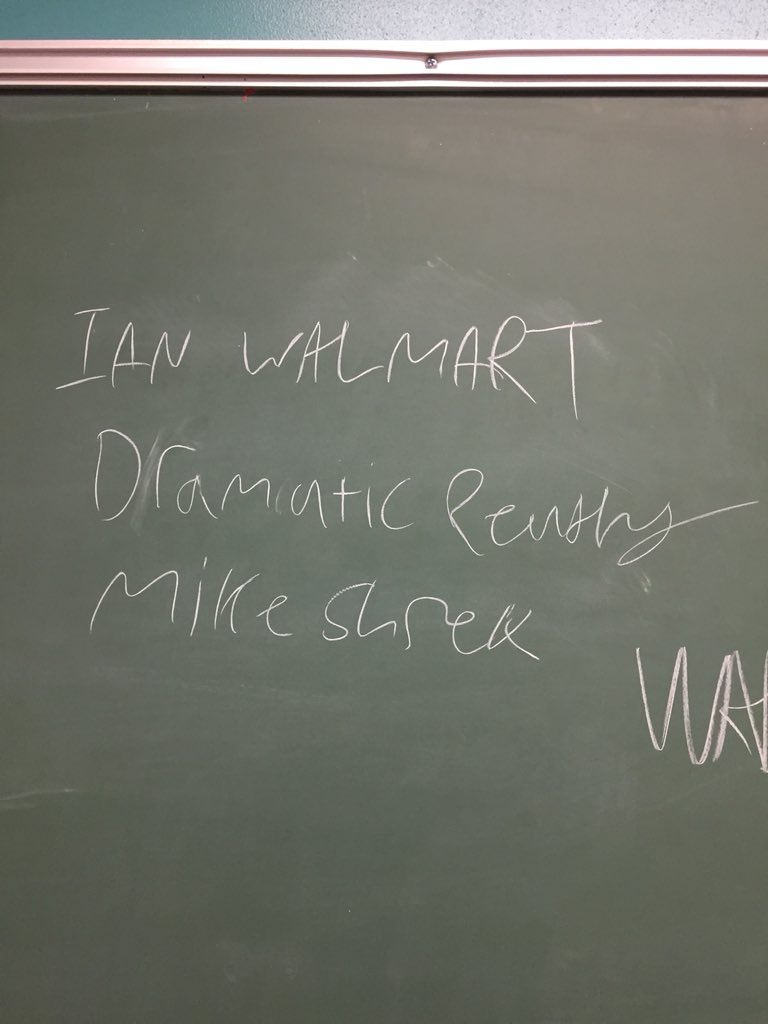 IAN WALMART
Dramatic
Mike Shrek
WA